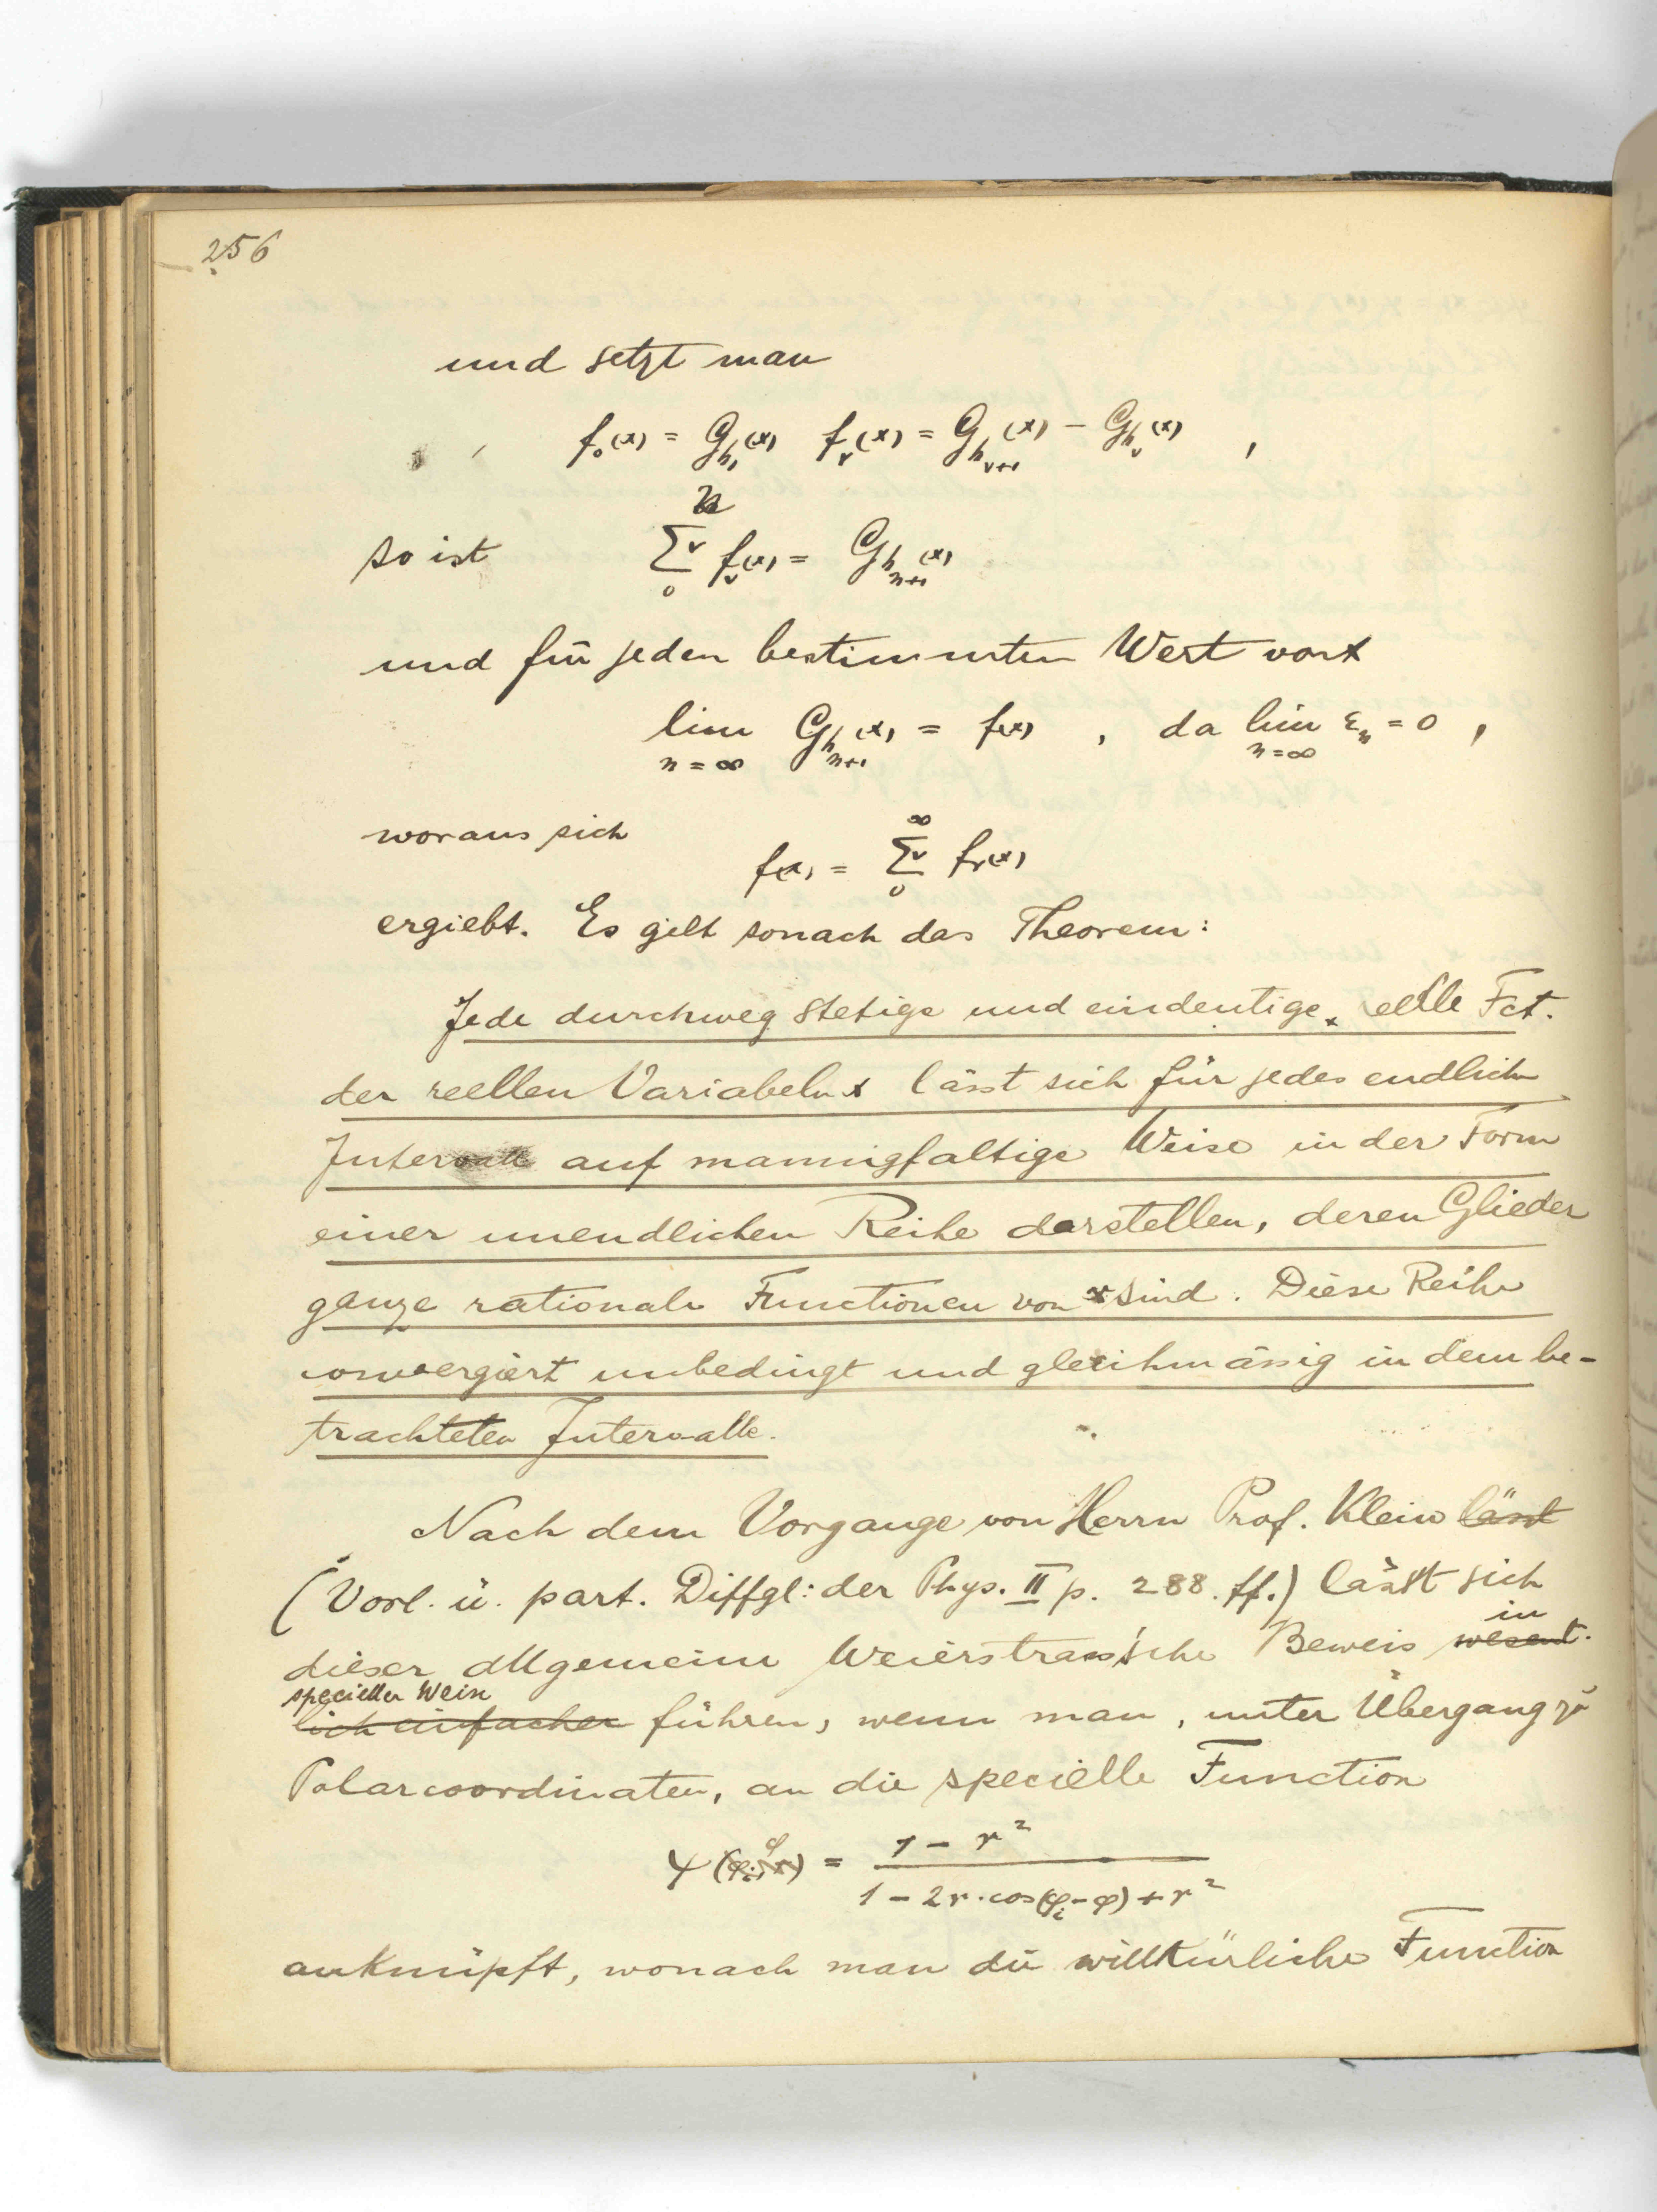 256
und setzt man
f₀(x) = G_{h₁}(x)   f_ν(x) = G_{h_{ν+1}}(x) − G_{h_ν}(x) ,
so ist   Σ^ν_{0}^{n} f_ν(x) = G_{h_{n+1}}(x)
und für jeden bestimmten Wert von x
lim_{n=∞} G_{h_{n+1}}(x) = f(x) , da lim_{n=∞} ε_n = 0 ,
woraus sich   f(x) = Σ^ν_{0}^{∞} f_ν(x)
ergiebt. Es gilt sonach das Theorem:
Jede durchweg stetige und eindeutige reelle Fct.
der reellen Variabeln x lässt sich für jedes endliche
Intervall auf mannigfaltige Weise in der Form
einer unendlichen Reihe darstellen, deren Glieder
ganze rationale Functionen von x sind. Diese Reihe
convergiert unbedingt und gleichmässig in dem be-
trachteten Intervalle.
Nach dem Vorgange von Herrn Prof. Klein lässt
(Vorl. ü. part. Diffgl: der Phys. II p. 288. ff.) lässt sich
dieser allgemeine Weierstrass'sche Beweis wesent- in
specieller Weise
lich einfacher führen, wenn man, unter Übergang zu
Polarcoordinaten, an die specielle Function
ψ = (1 − r²) / (1 − 2r·cos(φ_i − φ) + r²)
anknüpft, wonach man die willkürliche Function